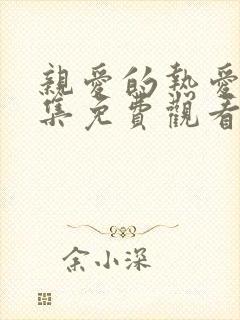 親愛的熱愛
集免費觀看
余小深